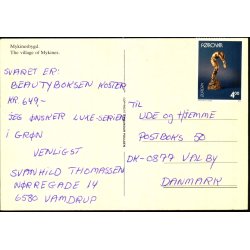 Mykinesbygd.
The village of Mykines.
SVARET ER:
BEAUTYBOKSEN KOSTER
KR. 649,-
JEG ØNSKER LUXE-SERIEN
I GRØN
VENLIGST
SVANHILD THOMASSEN
NØRREGADE 14
6580 VAMDRUP
FØROYAR
EUROPA
4,00
TIL
UDE OG HJEMME
POSTBOKS 50
DK-0877 VALBY
DANMARK